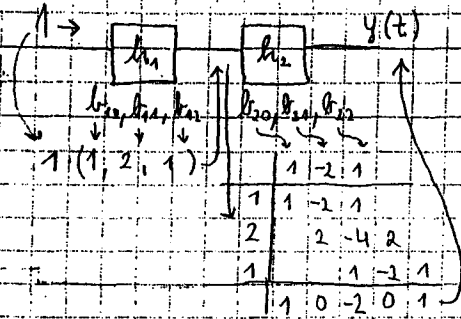 1 → h₁ h₂ y(t)
b₁₀, b₁₁, b₁₂ b₂₀, b₂₁, b₂₂
1 (1, 2, 1)
1 -2 1
1 1 -2 1
2 2 -4 2
1 1 -2 1
1 0 -2 0 1